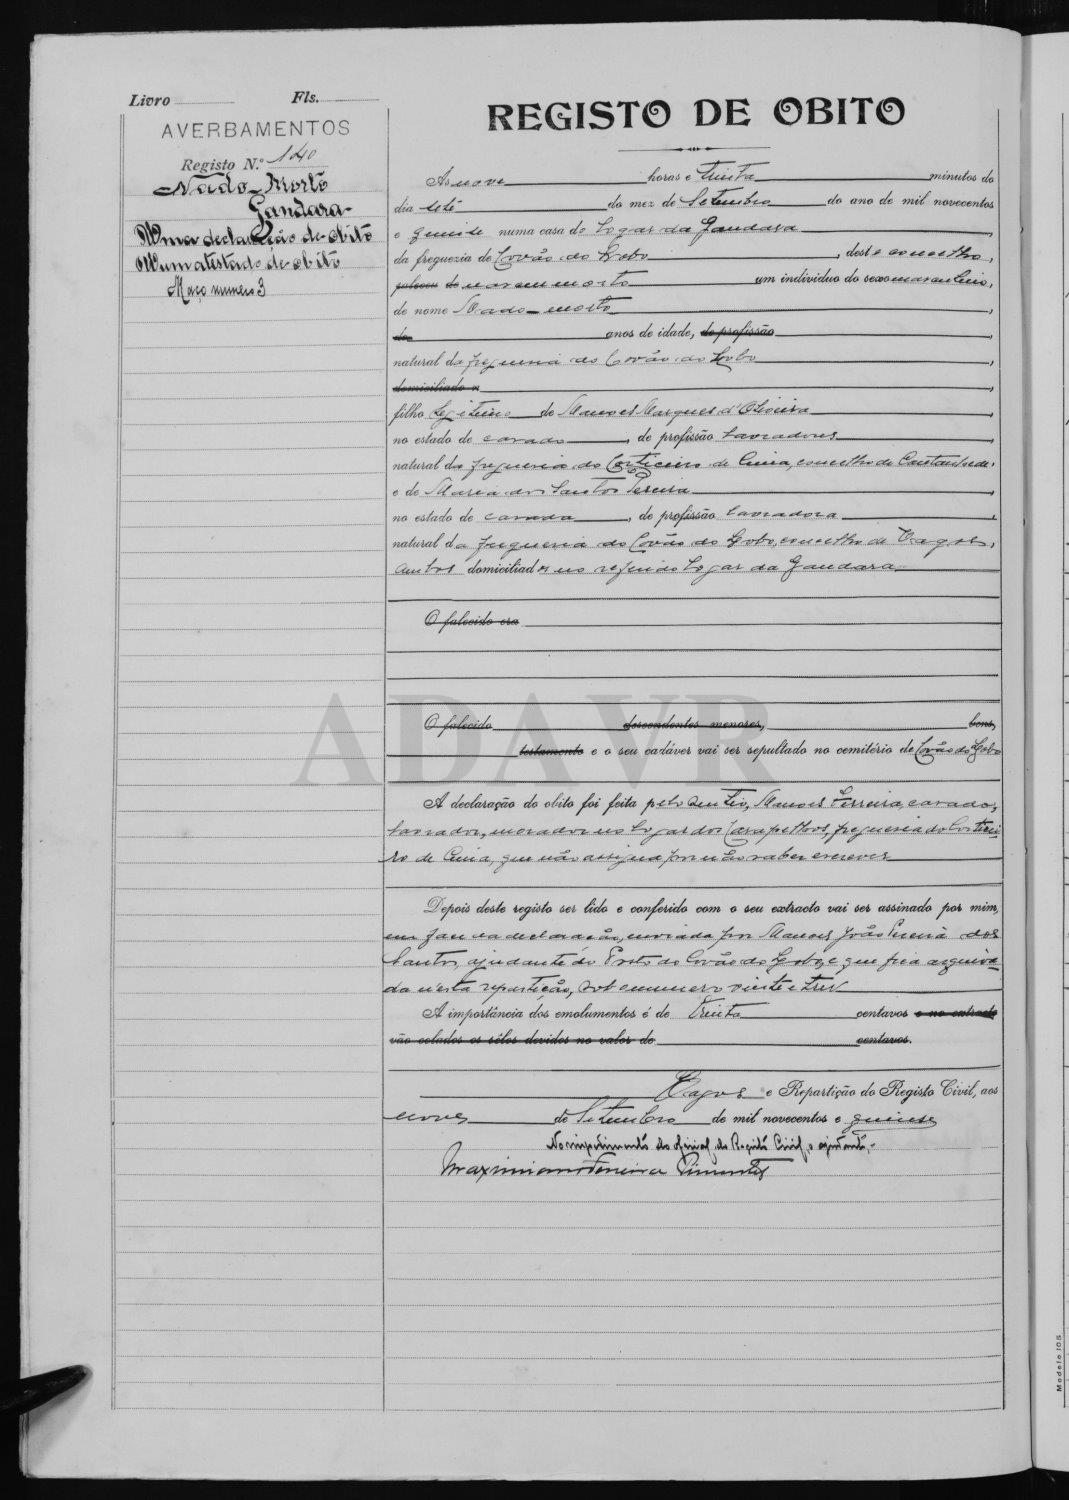 Livro Fls.
AVERBAMENTOS
Registo N.º 140
Nado-Morto
Gandara-
Uma declaração de obito
Um atestado de obito
Maço numero 3
REGISTO DE OBITO
As nove horas e trinta minutos do
dia sete do mez de Setembro do ano de mil novecentos
e quinse numa casa do Logar da Gandara,
da freguezia de Covão do Lobo, deste concelho,
faleceu de nasceu morto um individuo do sexo masculino,
de nome Nado-morto,
de anos de idade, de profissão,
natural da freguesia do Covão do Lobo,
domiciliado n,
filho legitimo de Manoel Marques d'Oliveira,
no estado de casado, de profissão lavradores,
natural da freguesia do Corticeiro de Cima, concelho de Cantanhede,
e de Maria dos Santos Pereira,
no estado de casada, de profissão lavradora,
natural da freguesia do Covão do Lobo, concelho de Vagos,
ambos domiciliados no referido Logar da Gandara
O falecido era
O falecido descendentes menores, bens,
testamento e o seu cadáver vai ser sepultado no cemitério de Covão do Lobo
A declaração do obito foi feita pelo Manoel Ferreira, casado,
lavrador, morador no Logar dos Carapelhos, freguesia do Corticei-
ro de Cima, que não assigna por não saber escrever
Depois deste registo ser lido e conferido com o seu extracto vai ser assinado por mim,
em face da declaração, enviada por Manoel João Pereira dos
Santos, ajudante do Posto do Covão do Lobo, e que fica arquiva-
da n'esta repartição, sob o numero vinte e tres
A importância dos emolumentos é de Trinta centavos e no extracto
vão colados os sêlos devidos no valor de centavos.
Vagos e Repartição do Registo Civil, aos
nove de Setembro de mil novecentos e quinse
No impedimento do oficial do Registo Civil, o ajudante,-
Maximiano Ferreira Pimentel
ADAVR
Modelo 105